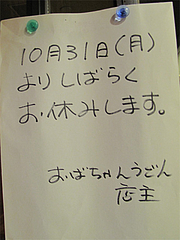 10月31日(月)
よりしばらく
お休みします。
おばちゃんうどん
店主